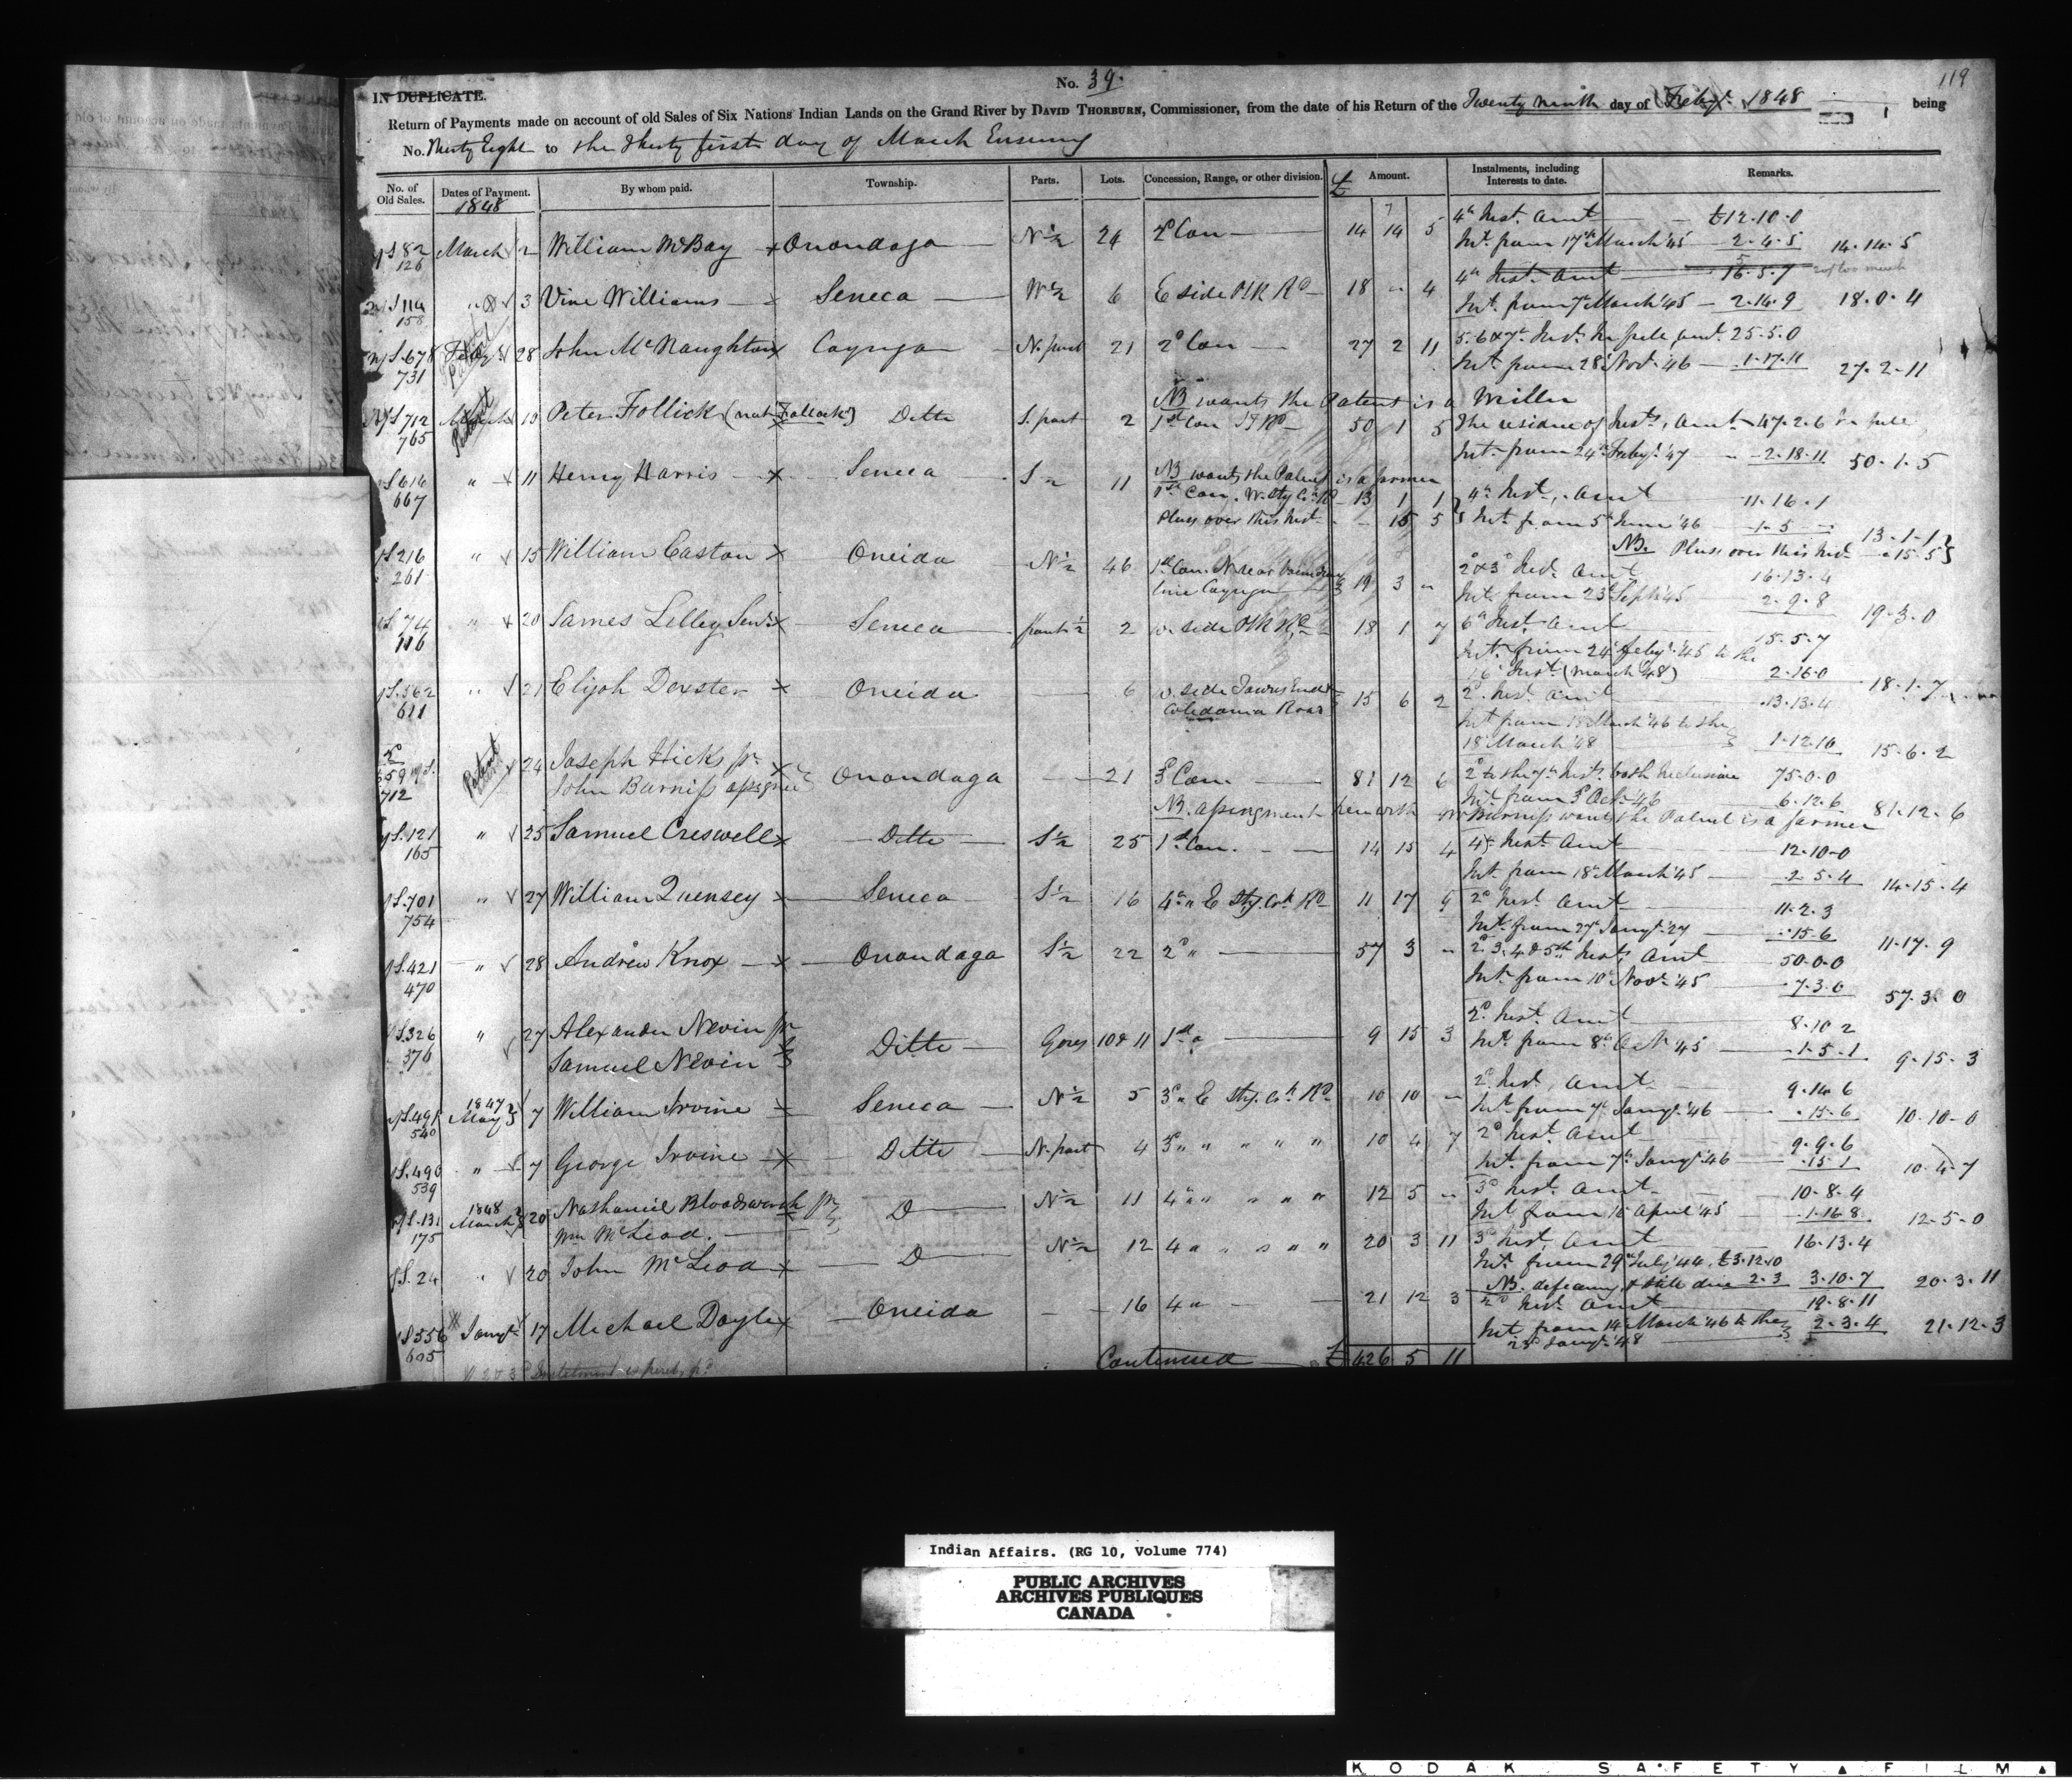 119
No. 39.
IN DUPLICATE.
Return of Payments made on account of old Sales of Six Nations Indian Lands on the Grand River by DAVID THORBURN, Commissioner, from the date of his Return of the Twenty ninth day of Feby. 1848 being
No. Thirty Eight to the Thirty first day of March Ensuing
No. of Old Sales. Dates of Payment. By whom paid. Township. Parts. Lots. Concession, Range, or other division. £ Amount. Instalments, including Interests to date. Remarks.
1848
S 82 March 2 William McBay Onondaga N ½ 24 2d Con 14 14 5 4th Inst. Amt £12.10.0
126 Int. from 17th March '45 2.4.5 14.14.5
S 114 " 3 Vine Williams Seneca W ½ 6 E side Plk Rd 18 " 4 4th Inst. Amt 16.5.7 too much
158 Int. from 7th March '45 2.14.9 18.0.4
S. 678 Feby 28 John McNaughton Cayuga N. part 21 2d Con 27 2 11 5. 6 & 7th Inst. In full amt. 25.5.0
731 Patent Int. from 28 Novr. '46 1.17.11 27.2.11
NB wants the Patent is a Miller
S 712 March 10 Peter Follick (not Follock) Ditto S. part 2 1st Con 50 1 5 The residue of Inst, Amt 47.2.6 In full
765 Patent Int. from 24th Feby. '47 2.18.11 50.1.5
NB wants the Patent is a farmer
S 616 " 11 Henry Harris Seneca S ½ 11 1st Con. W. Sty Ck Rd 13 1 1 4th Inst, Amt 11.16.1
667 Pluss over this Inst 15 5 Int. from 5th June '46 1.5 13.1.1
NB. Pluss over this Inst 15.5
S 216 " 15 William Caston Oneida N ½ 46 1st Con. N. near boundary 19 3 " 2d & 3d Inst. Amt 16.13.4
261 line Cayuga Int. from 23d Sept '45 2.9.8 19.3.0
S. 74 " 20 James Lelley Senr. Seneca part ½ 2 W. side Plk Rd 18 1 7 6th Inst. Amt 15.5.7
116 Int. from 24 Feby. '45 to the
16 Inst. (March '48) 2.16.0 18.1.7
S. 562 " 21 Elijah Dexter Oneida 6 W. side Townsend 15 6 2 2d Inst. Amt 13.13.4
611 Caledonia Road Int. from 18 March '46 to the
18 March '48 1.12.10 15.6.2
659 Patent 24 Joseph Hicks pr Onondaga 21 3d Con. 81 12 6 2d to the 7th Inst. both inclusive 75.0.0
712 John Burniss assignee Int. from 3d Oct. '46 6.12.6 81.12.6
NB. assingment herewith Mr Burniss wants the Patent is a farmer
S. 121 " 25 Samuel Creswell Ditto S ½ 25 1st Con. 14 15 4 4th Inst. Amt 12.10.0
165 Int. from 18th March '45 2.5.4 14.15.4
S. 701 " 27 William Quensey Seneca S ½ 16 4th " E Sty. Ck Rd 11 17 9 2d Inst. Amt 11.2.3
754 Int. from 27th Jany. '47 15.6 11.17.9
S. 421 " 28 Andrew Knox Onondaga S ½ 22 2d " 57 3 " 2d 3. 4 & 5th Inst, Amt 50.0.0
470 Int. from 10th Novr. '45 7.3.0 57.3.0
S. 326 " 27 Alexander Nevin pr Ditto Gores 10 & 11 1st " 9 15 3 2d Inst. Amt 8.10.2
370 Samuel Nevin Int. from 8th Oct. '45 1.5.1 9.15.3
S. 491 1847 May 7 William Irvine Seneca N ½ 5 3d " E Sty. Ck Rd 10 10 " 2d Inst, Amt 9.14.6
540 Int. from 7th Jany. '46 15.6 10.10.0
S. 490 " 7 George Irvine Ditto N. part 4 3d " " " " " 10 4 7 2d Inst. Amt 9.9.6
539 Int. from 7th Jany. '46 15.1 10.4.7
S. 131 1848 March 20 Nathaniel Bloodsworth pr Do N ½ 11 4th " " " " " 12 5 " 3d Inst. Amt 10.8.4
175 Wm McLeod. Int. from 16 April '45 1.16.8 12.5.0
S. 24 " 20 John McLeod Do N ½ 12 4 " " " " " 20 3 11 3d Inst. Amt 16.13.4
Int. from 29th July '44, £3.12.10
NB. deficiency & still due 2.3 3.10.7 20.3.11
S 556 Jany. 17 Michael Doyle Oneida 16 4 " 21 12 3 2d Inst. Amt 19.8.11
605 Int. from 14 March '46 to the 2.3.4 21.12.3
23d Jany. '48
Continued £ 426 5 11
Indian Affairs. (RG 10, Volume 774)
PUBLIC ARCHIVES
ARCHIVES PUBLIQUES
CANADA
KODAK SAFETY FILM